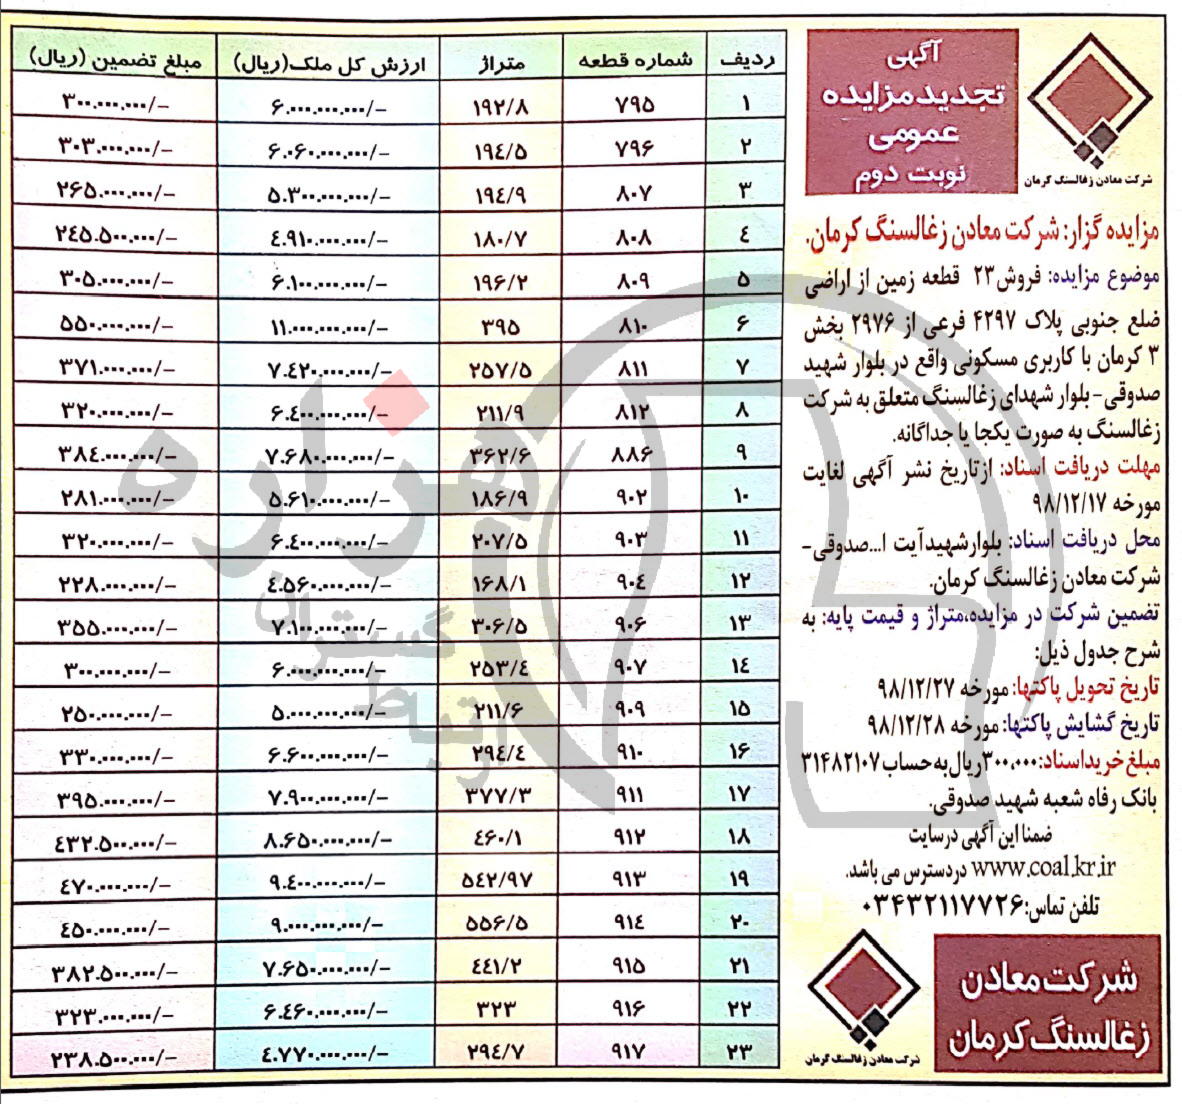 آگهی
تجدید مزایده
عمومی
نوبت دوم
شرکت معادن زغالسنگ کرمان
مزایده گزار: شرکت معادن زغالسنگ کرمان.
موضوع مزایده: فروش ۲۳ قطعه زمین از اراضی
ضلع جنوبی پلاک ۴۲۹۷ فرعی از ۲۹۷۶ بخش
۳ کرمان با کاربری مسکونی واقع در بلوار شهید
صدوقی-بلوار شهدای زغالسنگ متعلق به شرکت
زغالسنگ به صورت یکجا یا جداگانه.
مهلت دریافت اسناد: از تاریخ نشر آگهی لغایت
مورخه ۹۸/۱۲/۱۷
محل دریافت اسناد: بلوار شهید آیت ا...صدوقی-
شرکت معادن زغالسنگ کرمان.
تضمین شرکت در مزایده،متراژ و قیمت پایه: به
شرح جدول ذیل:
تاریخ تحویل پاکتها: مورخه ۹۸/۱۲/۲۷
تاریخ گشایش پاکتها: مورخه ۹۸/۱۲/۲۸
مبلغ خرید اسناد: ۳۰۰،۰۰۰ریال به حساب ۳۱۴۸۲۱۰۷
بانک رفاه شعبه شهید صدوقی.
ضمنا این آگهی در سایت
www.coal.kr.ir در دسترس می باشد.
تلفن تماس: ۰۳۴۳۲۱۱۷۷۲۶
شرکت معادن
زغالسنگ کرمان
شرکت معادن زغالسنگ کرمان
ردیف شماره قطعه متراژ ارزش کل ملک(ریال) مبلغ تضمین (ریال)
۱ ۷۹۵ ۱۹۲/۸ ۶.۰۰۰.۰۰۰.۰۰۰/- ۳۰۰.۰۰۰.۰۰۰/-
۲ ۷۹۶ ۱۹٤/۵ ۶.۰۶۰.۰۰۰.۰۰۰/- ۳۰۳.۰۰۰.۰۰۰/-
۳ ۸۰۷ ۱۹٤/۹ ۵.۳۰۰.۰۰۰.۰۰۰/- ۲۶۵.۰۰۰.۰۰۰/-
٤ ۸۰۸ ۱۸۰/۷ ٤.۹۱۰.۰۰۰.۰۰۰/- ۲٤۵.۵۰۰.۰۰۰/-
۵ ۸۰۹ ۱۹۶/۲ ۶.۱۰۰.۰۰۰.۰۰۰/- ۳۰۵.۰۰۰.۰۰۰/-
۶ ۸۱۰ ۳۹۵ ۱۱.۰۰۰.۰۰۰.۰۰۰/- ۵۵۰.۰۰۰.۰۰۰/-
۷ ۸۱۱ ۲۵۷/۵ ۷.٤۲۰.۰۰۰.۰۰۰/- ۳۷۱.۰۰۰.۰۰۰/-
۸ ۸۱۲ ۲۱۱/۹ ۶.٤۰۰.۰۰۰.۰۰۰/- ۳۲۰.۰۰۰.۰۰۰/-
۹ ۸۸۶ ۳۶۲/۶ ۷.۶۸۰.۰۰۰.۰۰۰/- ۳۸٤.۰۰۰.۰۰۰/-
۱۰ ۹۰۲ ۱۸۶/۹ ۵.۶۱۰.۰۰۰.۰۰۰/- ۲۸۱.۰۰۰.۰۰۰/-
۱۱ ۹۰۳ ۲۰۷/۵ ۶.٤۰۰.۰۰۰.۰۰۰/- ۳۲۰.۰۰۰.۰۰۰/-
۱۲ ۹۰٤ ۱۶۸/۱ ٤.۵۶۰.۰۰۰.۰۰۰/- ۲۲۸.۰۰۰.۰۰۰/-
۱۳ ۹۰۶ ۳۰۶/۵ ۷.۱۰۰.۰۰۰.۰۰۰/- ۳۵۵.۰۰۰.۰۰۰/-
۱٤ ۹۰۷ ۲۵۳/٤ ۶.۰۰۰.۰۰۰.۰۰۰/- ۳۰۰.۰۰۰.۰۰۰/-
۱۵ ۹۰۹ ۲۱۱/۶ ۵.۰۰۰.۰۰۰.۰۰۰/- ۲۵۰.۰۰۰.۰۰۰/-
۱۶ ۹۱۰ ۲۹٤/٤ ۶.۶۰۰.۰۰۰.۰۰۰/- ۳۳۰.۰۰۰.۰۰۰/-
۱۷ ۹۱۱ ۳۷۷/۳ ۷.۹۰۰.۰۰۰.۰۰۰/- ۳۹۵.۰۰۰.۰۰۰/-
۱۸ ۹۱۲ ٤۶۰/۱ ۸.۶۵۰.۰۰۰.۰۰۰/- ٤۳۲.۵۰۰.۰۰۰/-
۱۹ ۹۱۳ ۵٤۲/۹۷ ۹.٤۰۰.۰۰۰.۰۰۰/- ٤۷۰.۰۰۰.۰۰۰/-
۲۰ ۹۱٤ ۵۵۶/۵ ۹.۰۰۰.۰۰۰.۰۰۰/- ٤۵۰.۰۰۰.۰۰۰/-
۲۱ ۹۱۵ ٤٤۱/۲ ۷.۶۵۰.۰۰۰.۰۰۰/- ۳۸۲.۵۰۰.۰۰۰/-
۲۲ ۹۱۶ ۳۲۳ ۶.٤۶۰.۰۰۰.۰۰۰/- ۳۲۳.۰۰۰.۰۰۰/-
۲۳ ۹۱۷ ۲۹٤/۷ ٤.۷۷۰.۰۰۰.۰۰۰/- ۲۳۸.۵۰۰.۰۰۰/-
هزاره
گستران
ارتباط